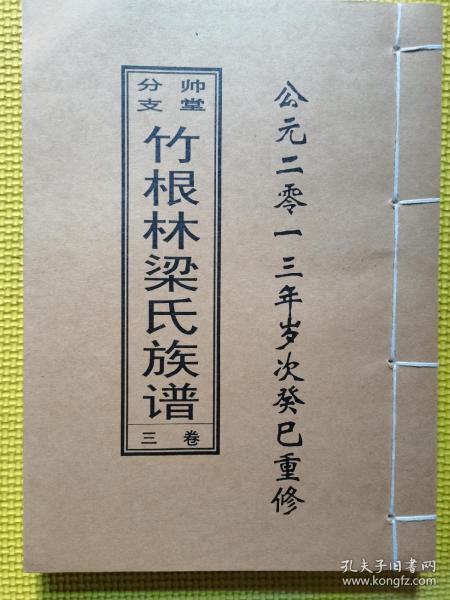 公元二零一三年岁次癸巳重修
帅堂
分支
竹根林梁氏族谱
卷三
孔夫子旧书网
www.kongfz.com